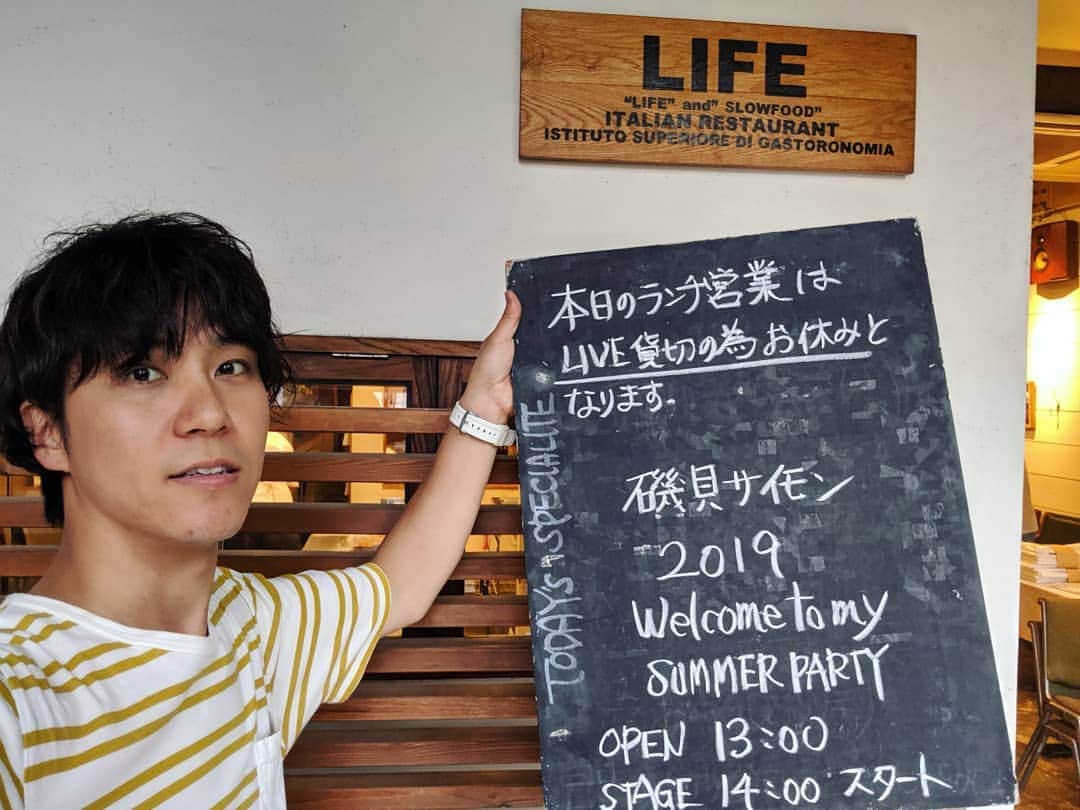 LIFE
"LIFE" and" SLOWFOOD"
ITALIAN RESTAURANT
ISTITUTO SUPERIORE DI GASTORONOMIA
本日のランチ営業は
LIVE貸切の為お休みと
なります.
TODAY's SPECIALITE
磯貝サイモン
2019
Welcome to my
SUMMER PARTY
OPEN 13:00
STAGE 14:00 スタート